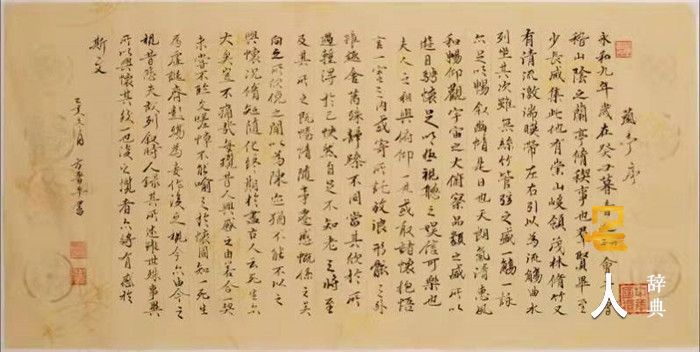 蘭亭序
永和九年歲在癸丑暮春之初會于會
稽山陰之蘭亭脩稧事也群賢畢至
少長咸集此地有崇山峻領茂林脩竹又
有清流激湍暎帶左右引以為流觴曲水
列坐其次雖無絲竹管弦之盛一觴一詠
亦足以暢叙幽情是日也天朗氣清惠風
和暢仰觀宇宙之大俯察品類之盛所以
遊目騁懷足以極視聽之娛信可樂也
夫人之相與俯仰一世或取諸懷抱悟
言一室之内或寄所託放浪形骸之外
雖趣舍萬殊靜躁不同當其欣於所
遇暫得於己怏然自足不知老之將至
及其所之既惓情隨事遷感慨係之矣
向之所欣俛仰之間以為陳迹猶不能不以之
興懷況脩短隨化終期於盡古人云死生亦
大矣豈不痛哉每攬昔人興感之由若合一契
未嘗不臨文嗟悼不能喻之於懷固知一死生
為虛誕齊彭殤為妄作後之視今亦由今之
視昔悲夫故列叙時人錄其所述雖世殊事異
所以興懷其致一也後之攬者亦將有感於
斯文
人辞典